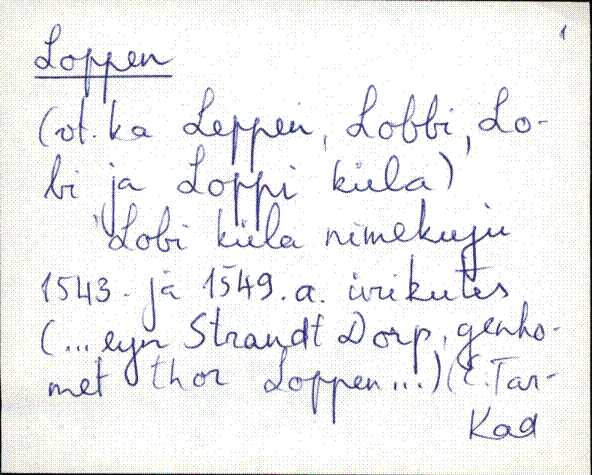 1
Loppen
(vt. ka Leppen, Lobbi, Lo-
bi ja Loppi küla)
Lobi küla nimekuju
1543. ja 1549. a. ürikutes
(... eyn Strandt Dorp, genho-
met thor Loppen...) (E. Tar-
kad